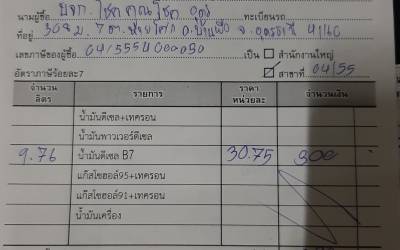 นามผู้ซื้อ บจก. โชค คูณ โชค อุดร ทะเบียนรถ
ที่อยู่ 308 ม. 7 ต. อ.บ้านผือ จ. อุดรธานี 41160
เลขภาษีของผู้ซื้อ เป็น สำนักงานใหญ่
อัตราภาษีร้อยละ7 สาขาที่ 04155
จำนวน ลิตร รายการ ราคา หน่วยละ จำนวนเงิน
น้ำมันดีเซล+เทครอน
น้ำมันพาวเวอร์ดีเซล
9.76 น้ำมันดีเซล B7 30.75 300
แก๊สโซฮอล์95+เทครอน
แก๊สโซฮอล์91+เทครอน
น้ำมันเครื่อง